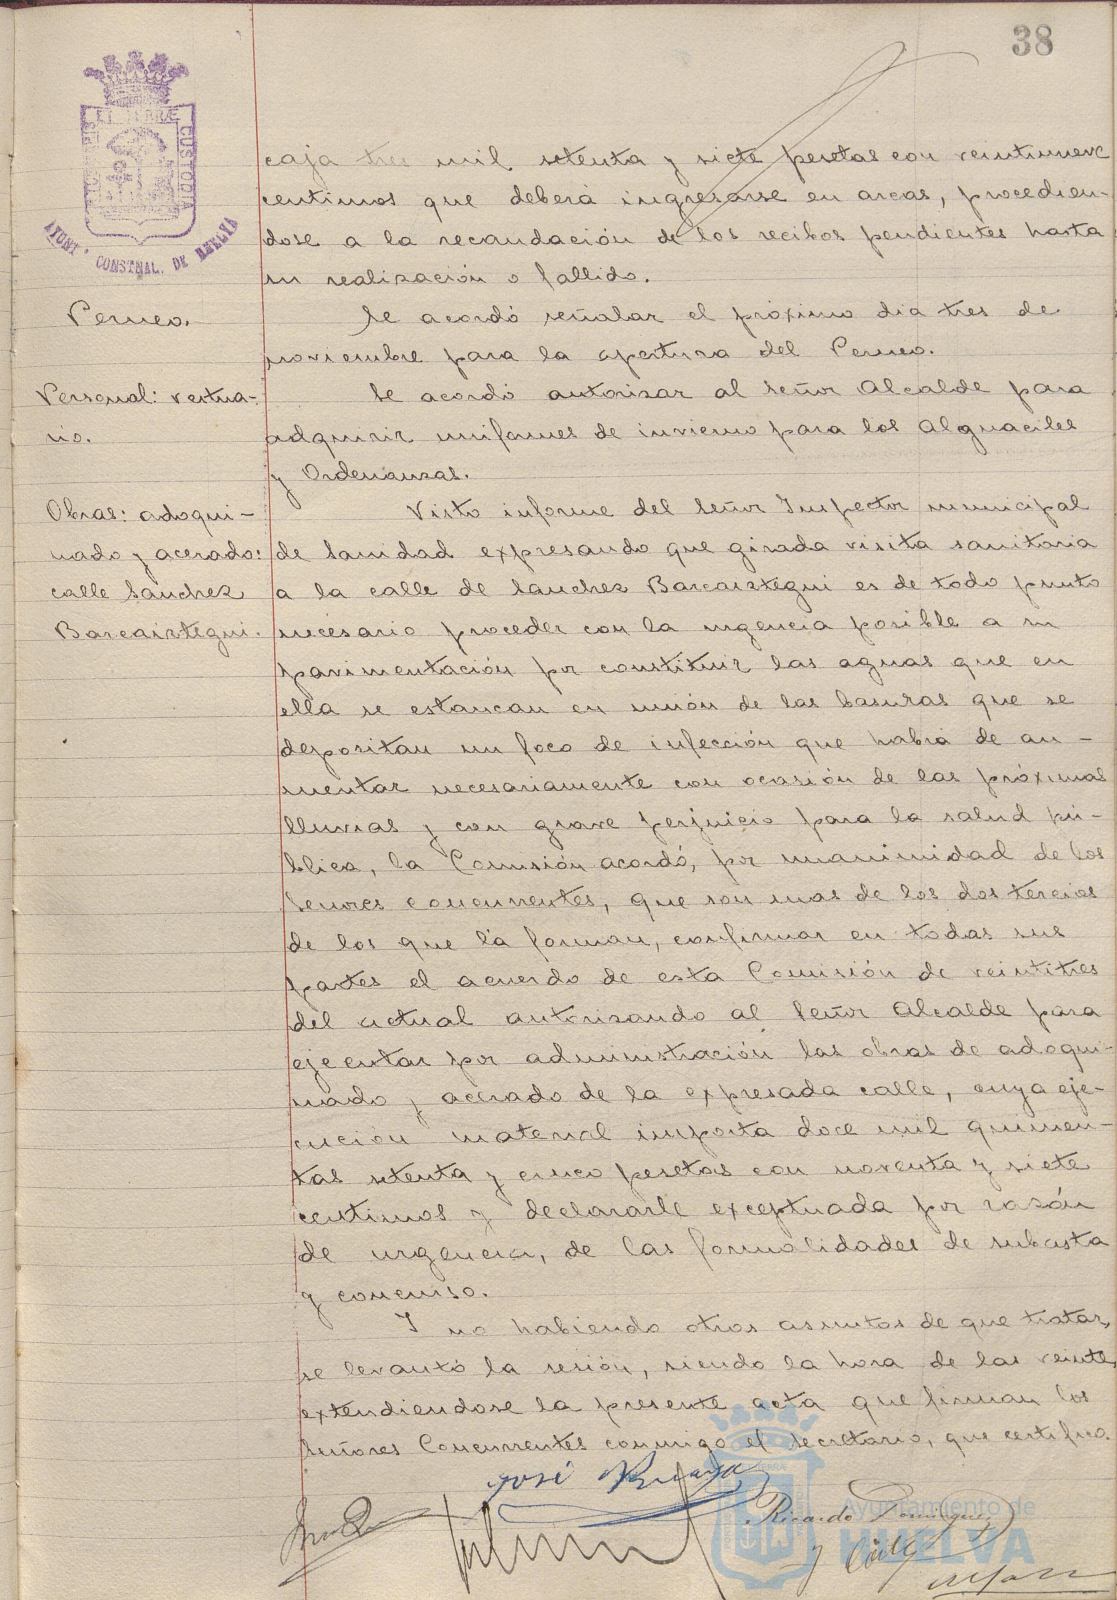 38
PORTUS MARIS ET TERRÆ CUSTODIA
AYUNTº CONSTNAL. DE HUELVA
caja tres mil setenta y siete pesetas con veintinueve
centimos que deberá ingresarse en arcas, procedien-
dose a la recaudación de los recibos pendientes hasta
su realización o fallido.
Perneo.
Se acordó señalar el próximo dia tres de
noviembre para la apertura del Perneo.
Personal: vestua-
rio.
Se acordó autorizar al Señor Alcalde para
adquirir uniformes de invierno para los Alguaciles
y Ordenanzas.
Obras: adoqui-
nado y acerado:
calle Sánchez
Barcaiztegui.
Visto informe del Señor Inspector municipal
de Sanidad expresando que girada visita sanitaria
a la calle de Sanchez Barcaiztegui es de todo punto
necesario proceder con la urgencia posible a su
pavimentación por constituir las aguas que en
ella se estancan en unión de las basuras que se
depositan un foco de infección que habrá de au-
mentar necesariamente con ocasión de las próximas
lluvias y con grave perjuicio para la salud pú-
blica, la Comisión acordó, por unanimidad de los
Señores concurrentes, que son mas de los dos tercios
de los que la forman, confirmar en todas sus
partes el acuerdo de esta Comisión de veintitres
del actual autorizando al Señor Alcalde para
ejecutar por administración las obras de adoqui-
nado y acerado de la expresada calle, cuya eje-
cución material importa doce mil quinien-
tas setenta y cinco pesetas con noventa y siete
centimos y declararle exceptuada por razón
de urgencia, de las formalidades de subasta
y concurso.
Y no habiendo otros asuntos de que tratar,
se levantó la sesión, siendo la hora de las veinte,
extendiendose la presente acta que firman los
Señores Concurrentes conmigo el Secretario, que certifico.
José
Ricardo Dominguez
Ayuntamiento de
HUELVA